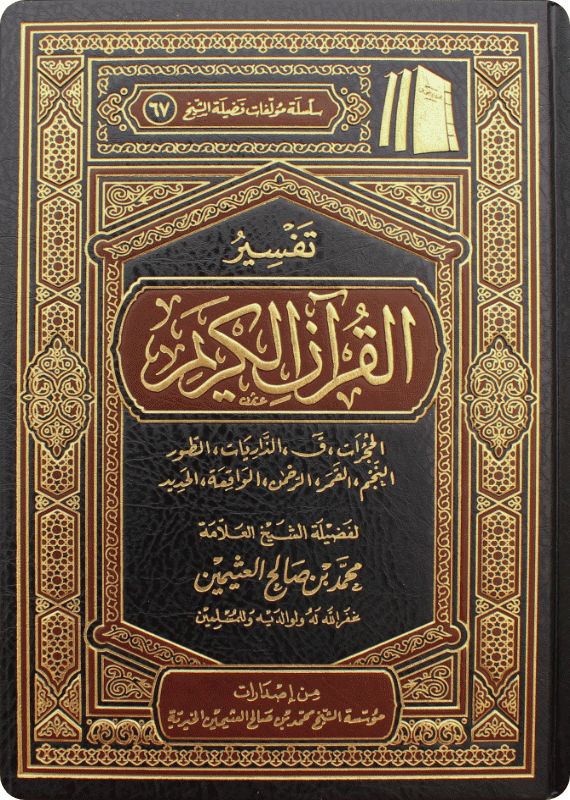 سلسلة مؤلفات فضيلة الشيخ ٦٧
تَفْسِيرُ
القُرْآنِ الكَرِيمِ
الحُجُرات، قَ، الذَّارِيَات، الطُّور
النَّجْم، القَمَر، الرَّحْمٰن، الوَاقِعَة، الحَدِيد
لفَضِيلَة الشَّيْخ العَلَّامَة
محمّد بن صَالح العثيمين
غفَر الله لَهُ ولوالدَيْه وَللمُسْلِمِين
مِن إصْدَارات
مؤسّسة الشّيخ محمّد بن صَالح العثيمين الخيريّة